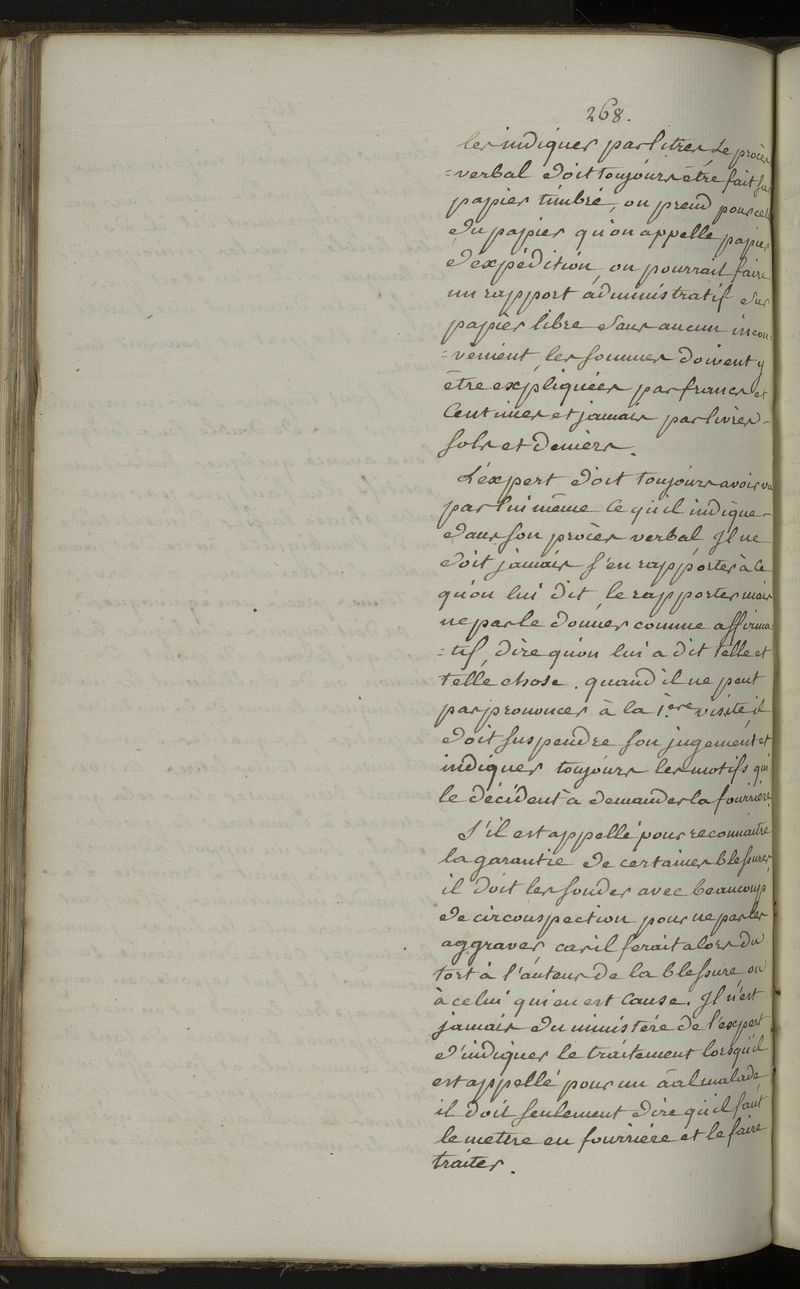 268.
les indiquer par litres Le procès
=verbal doit toujours être fait sur
papier timbré, on prend pour cela
du papier qu'on appelle papier
d'expédition, on pourrait faire
un rapport administratif sur
papier libre sans aucun incon:
=vénient, les sommes doivent y
être expliquées par francs et
Centimes et jamais par livres-
sols et deniers.
L'expert doit toujours avoir vu
par lui même ce qu'il indique-
dans son procès verbal Il ne
doit jamais s'en rapporter à ce
qu'on lui dit, le rapporter mais
ne pas le donner comme affirma:
=tif, dire qu'on lui a dit telle et
telle chose. quand il ne peut
pas prononcer à la 1.ere visite il
doit suspendre son jugement et
indiquer toujours les motifs qui
le décident à demander la fourrière
S'il est appellé pour reconnaitre
la garantie de certaines blessures,
il doit les sonder avec beaucoup
de circonspection pour ne pas les
aggraver car il ferait alors du
tort à l'auteur de la blessure, ou
à celui qui en est cause. Il n'est
jamais du ministère de l'expert
d'indiquer le traitement lorsqu'il
est appellé pour un aal malade,
il doit seulement dire qu'il faut
le mettre en fourrière et le faire
traiter.